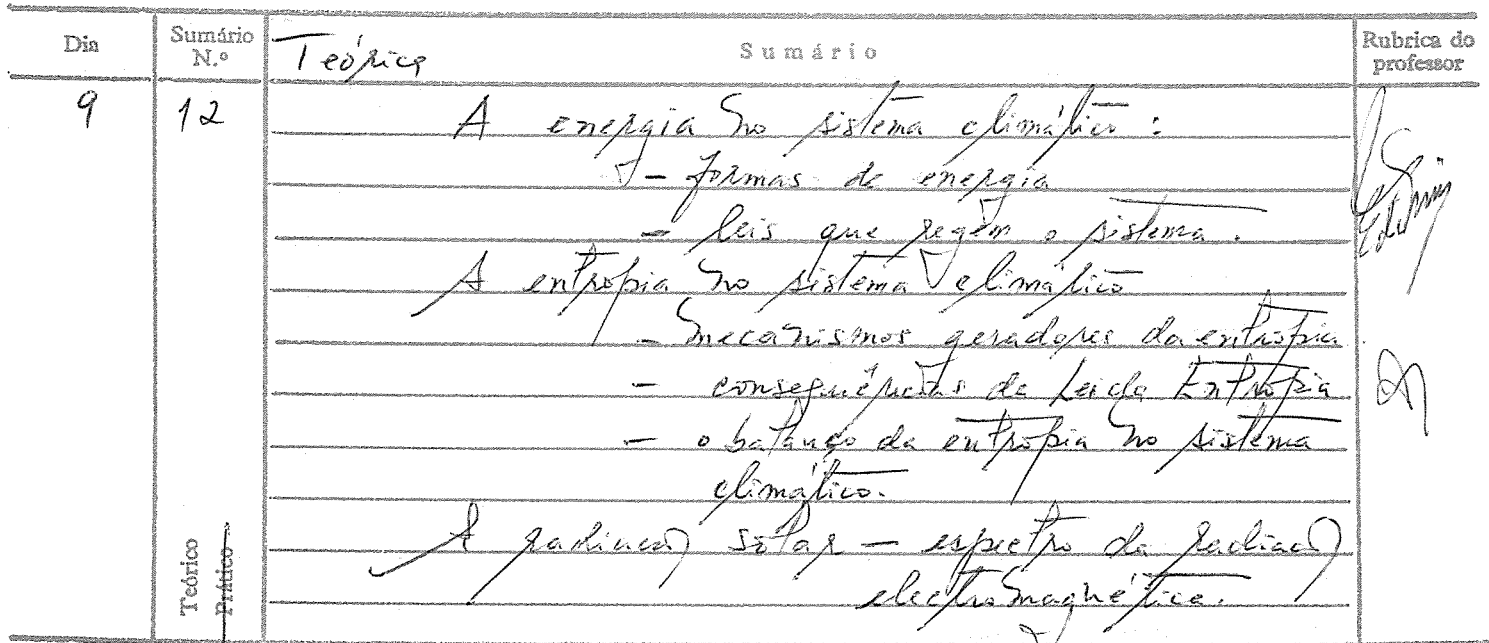 Dia Sumário N.º Teórica Sumário Rubrica do professor
9 12 A energia no sistema climático:
- formas de energia
- leis que regem o sistema.
A entropia no sistema climático
- mecanismos geradores da entropia
- consequências da Lei da Entropia
- o balanço da entropia no sistema
climático.
A radiação solar - espectro da radiação
electromagnética.
Teórico
Prático